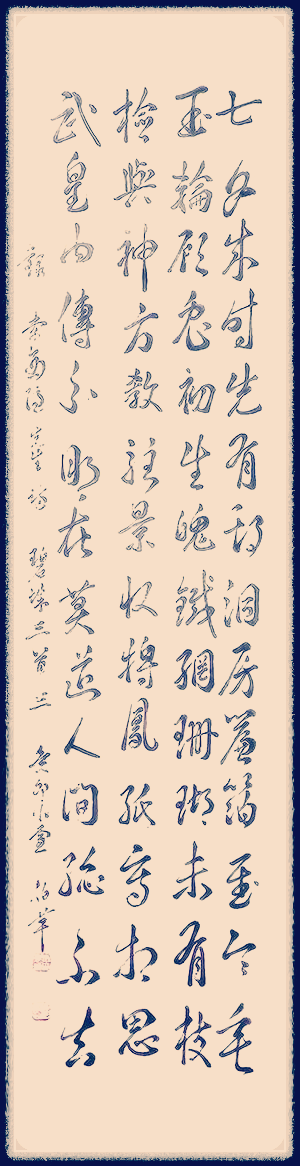 七夕來時先有期洞房簾箔至今垂
玉輪顧兔初生魄鐵網珊瑚未有枝
檢與神方教駐景收將鳳紙寫相思
武皇內傳分明在莫道人間總不知
錄 李商隱 詩 碧城三首三 癸卯小雪